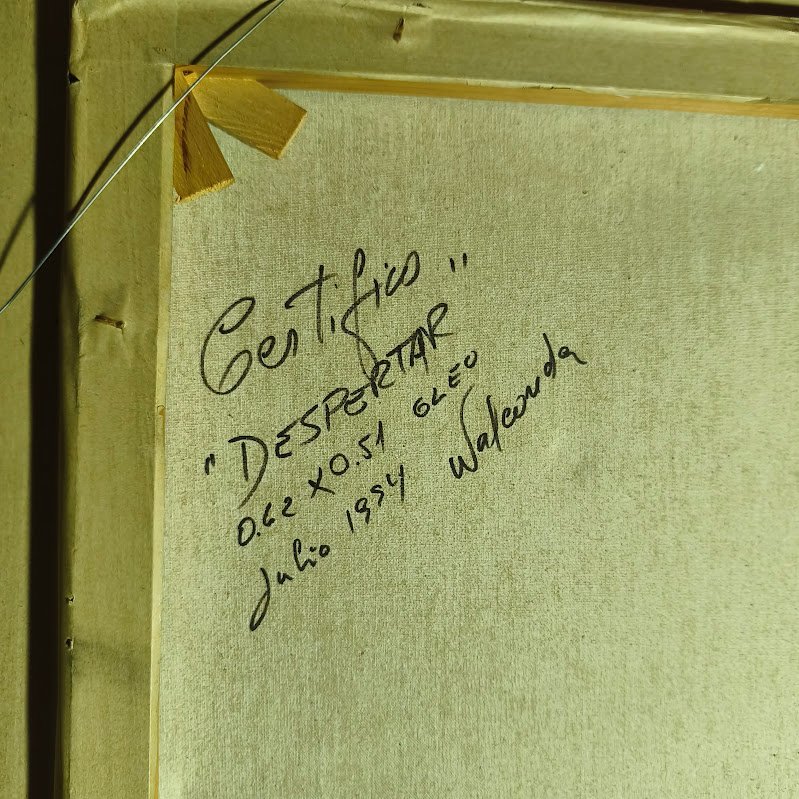 Certifico "
"DESPERTAR
0.62 X 0.51 OLEO
Julio 1994 Walconda